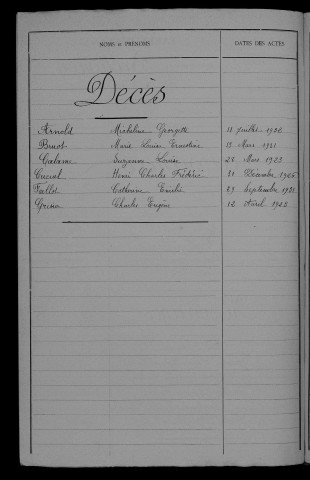 NOMS et PRÉNOMS DATES DES ACTES
Décès
Arnold Madeleine Georgette 11 Juillet 1926
Benot Marie Louise Ernestine 13 Mars 1931
Suzanne Louise 28 Mars 1923
Henri Charles Frédéric 31 Décembre 1926
Fallet Catherine Emilie 29 Septembre 1931
Charles Eugène 12 Avril 1923